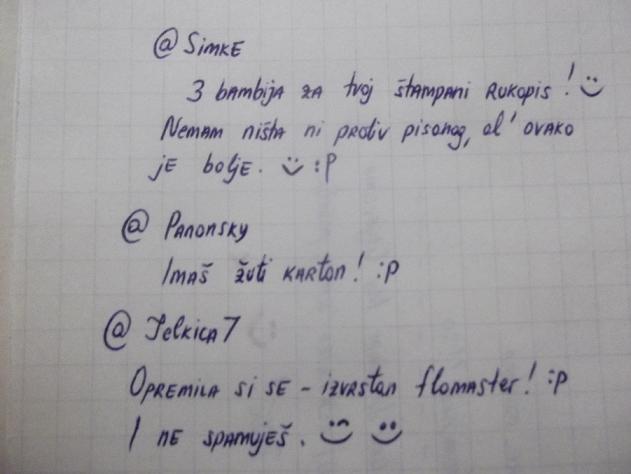 @ Simke
3 bambija za tvoj štampani rukopis! :)
Nemam ništa ni protiv pisanog, al' ovako
je bolje. :) :P
@ Panonsky
Imaš žuti karton! :P
@ Jelkica7
Opremila si se - izvrstan flomaster! :P
I ne spamuješ. :) :)